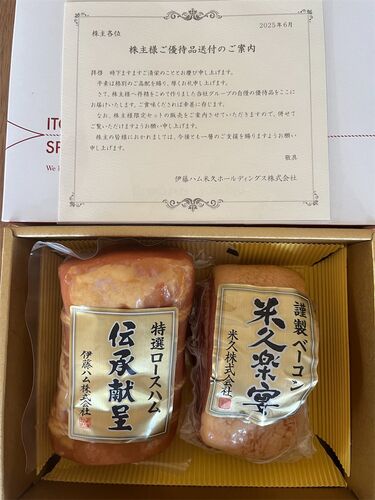 2025年6月
株主各位
株主様ご優待品送付のご案内
拝啓　時下ますますご清栄のこととお慶び申し上げます。
平素は格別のご高配を賜り、厚くお礼申し上げます。
さて、株主様へ丹精をこめて作りました当社グループの自慢の優待品をここに
お届けいたします。ご賞味くだされば幸甚に存じます。
なお、株主様限定セットの販売をご案内させていただきますので、併せて
ご覧いただけますようお願い申し上げます。
株主の皆様におかれましては、今後とも一層のご支援を賜りますようお願い
申し上げます。
敬具
伊藤ハム米久ホールディングス株式会社
ITO
SP
We
特選ロースハム
伝承献呈
伊藤ハム株式会社
謹製ベーコン
米久楽宴
米久株式会社